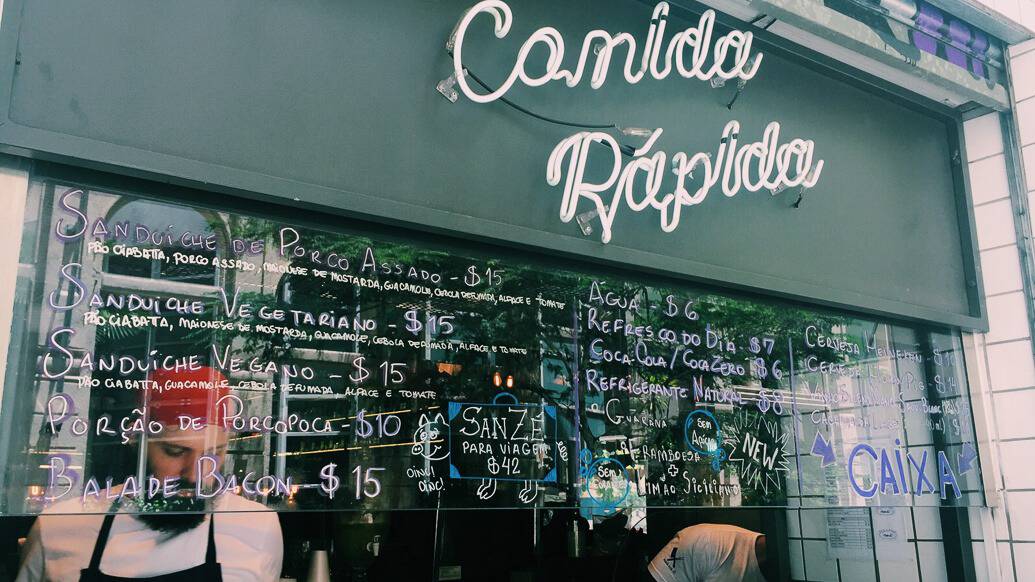 Comida
Rápida
SANDUÍCHE DE PORCO ASSADO - $15
PÃO CIABATTA, PORCO ASSADO, MAIONESE DE MOSTARDA, GUACAMOLE, CEBOLA DEFUMADA, ALFACE E TOMATE
SANDUÍCHE VEGETARIANO - $15
PÃO CIABATTA, MAIONESE DE MOSTARDA, GUACAMOLE, CEBOLA DEFUMADA, ALFACE E TOMATE
SANDUÍCHE VEGANO - $15
PÃO CIABATTA, GUACAMOLE, CEBOLA DEFUMADA, ALFACE E TOMATE
PORÇÃO DE PORCOPOCA - $10
BALA DE BACON - $15
OINC!
OINC!
SANZÉ
PARA VIAGEM
$42
ÁGUA $6
REFRESCO DO DIA $7
COCA COLA / COCA ZERO $6
REFRIGERANTE NATURAL $8
GUARANÁ
SEM
AÇÚCAR
FRAMBOESA
+
LIMÃO SICILIANO
SEM
NEW
CERVEJA HEINEKEN
CERVEJA
CAIXA